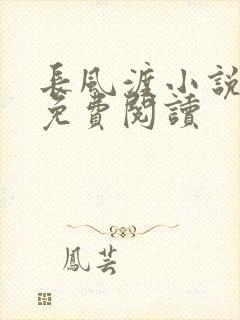 長風渡小說
免費閱讀
鳳芸